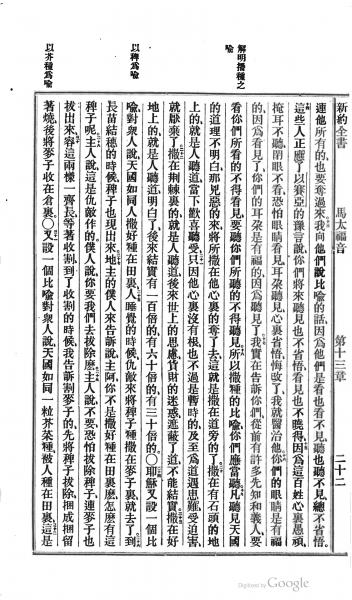 新約全書　馬太福音　第十三章　二十二
解明播種之喻
以稗種為喻
以芥種為喻
連他所有的、也要奪過來、我向他們說比喻的話、因為他們是看也看不見、聽也聽不見、總不省悟、
這些人正應了以賽亞的豫言說、你們將來聽見也不省悟、看見也不曉得、因為這百姓心裏愚頑、
掩耳不聽、閉眼不看、恐怕眼睛看見、耳朶聽見、心裏省悟、悔改了、我就醫治他、你們的眼睛是有福
的、因為看見了、你們的耳朶是有福的、因為聽見了、我實在告訴你們、從前有許多先知和義人、要
看你們所看的不得看見、要聽你們所聽的不得聽見、所以撒種的比喻、你們應當聽、凡聽見天國
的道理不明白、那兇惡的來、將所撒在他心裏的奪了去、這就是撒在道旁的了、撒在有石頭的地
上的、就是人聽道、當下歡喜聽受、只因他心裏沒有根、也不過是暫時的、及至為道遇患難、受迫害、
就厭棄了、撒在荊棘裏的、就是人聽道、後來世上的思慮、貨財的迷惑、遮蔽了道、不能結實、撒在好
地上的、就是人聽道明白了、後來結實、有一百倍的、有六十倍的、有三十倍的、〇耶穌又設一個比
喻、對衆人說、天國如同人撒好種在田裏、人睡覺的時候、仇敵來、將稗子種撒在麥子裏、就去了、到
長苗結穗的時候、稗子也現出來、地主的僕人來告訴說、主阿、你不是撒好種在田裏麼、怎麼有這
稗子呢、主人說、這是仇敵作的、僕人說、你要我們去拔除麼、主人說、不要、恐怕拔除稗子、連麥子也
拔出來、容這兩樣一齊長、等著收割、到了收割的時候、我告訴割麥子的、先將稗子拔除、捆成捆留
著燒、後將麥子收在倉裏、〇又設一個比喻、對衆人說、天國如同一粒芥菜種、被人種在田裏、這是
Digitized by Google